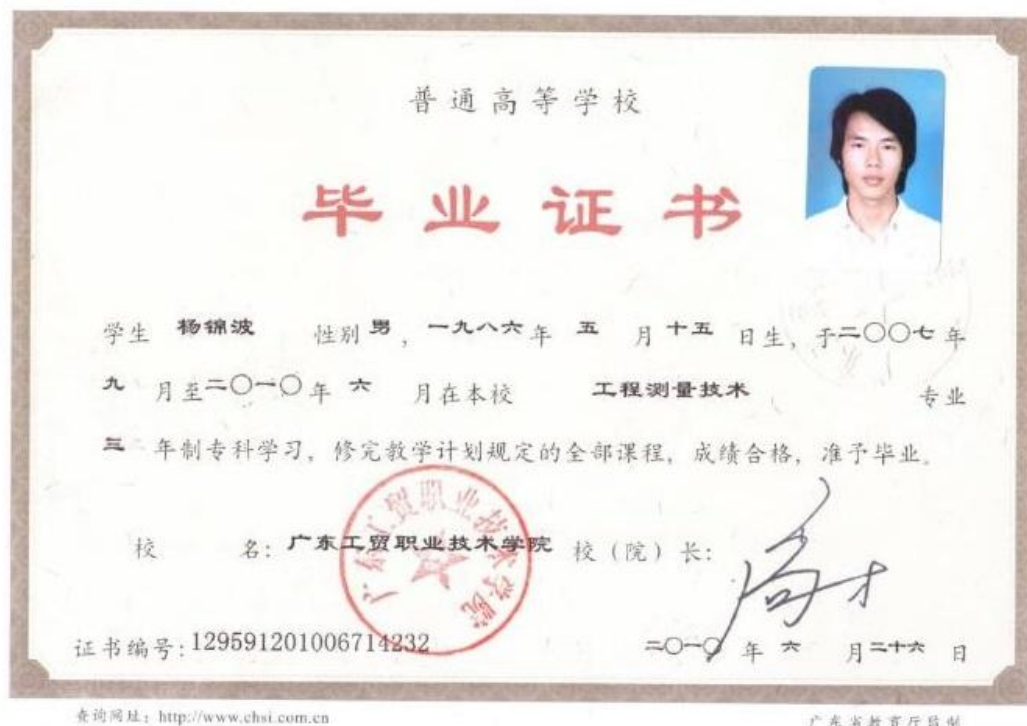 普通高等学校
毕业证书
学生 杨锦波 性别 男，一九八六年 五 月 十五 日生，于二〇〇七年
九 月至二〇一〇年 六 月在本校 工程测量技术 专业
三 年制专科学习，修完教学计划规定的全部课程，成绩合格，准予毕业。
校 名：广东工贸职业技术学院 校（院）长：
广东工贸职业技术学院
证书编号：129591201006714232 二〇一〇年 六 月二十六 日
查询网址：http://www.chsi.com.cn 广东省教育厅监制